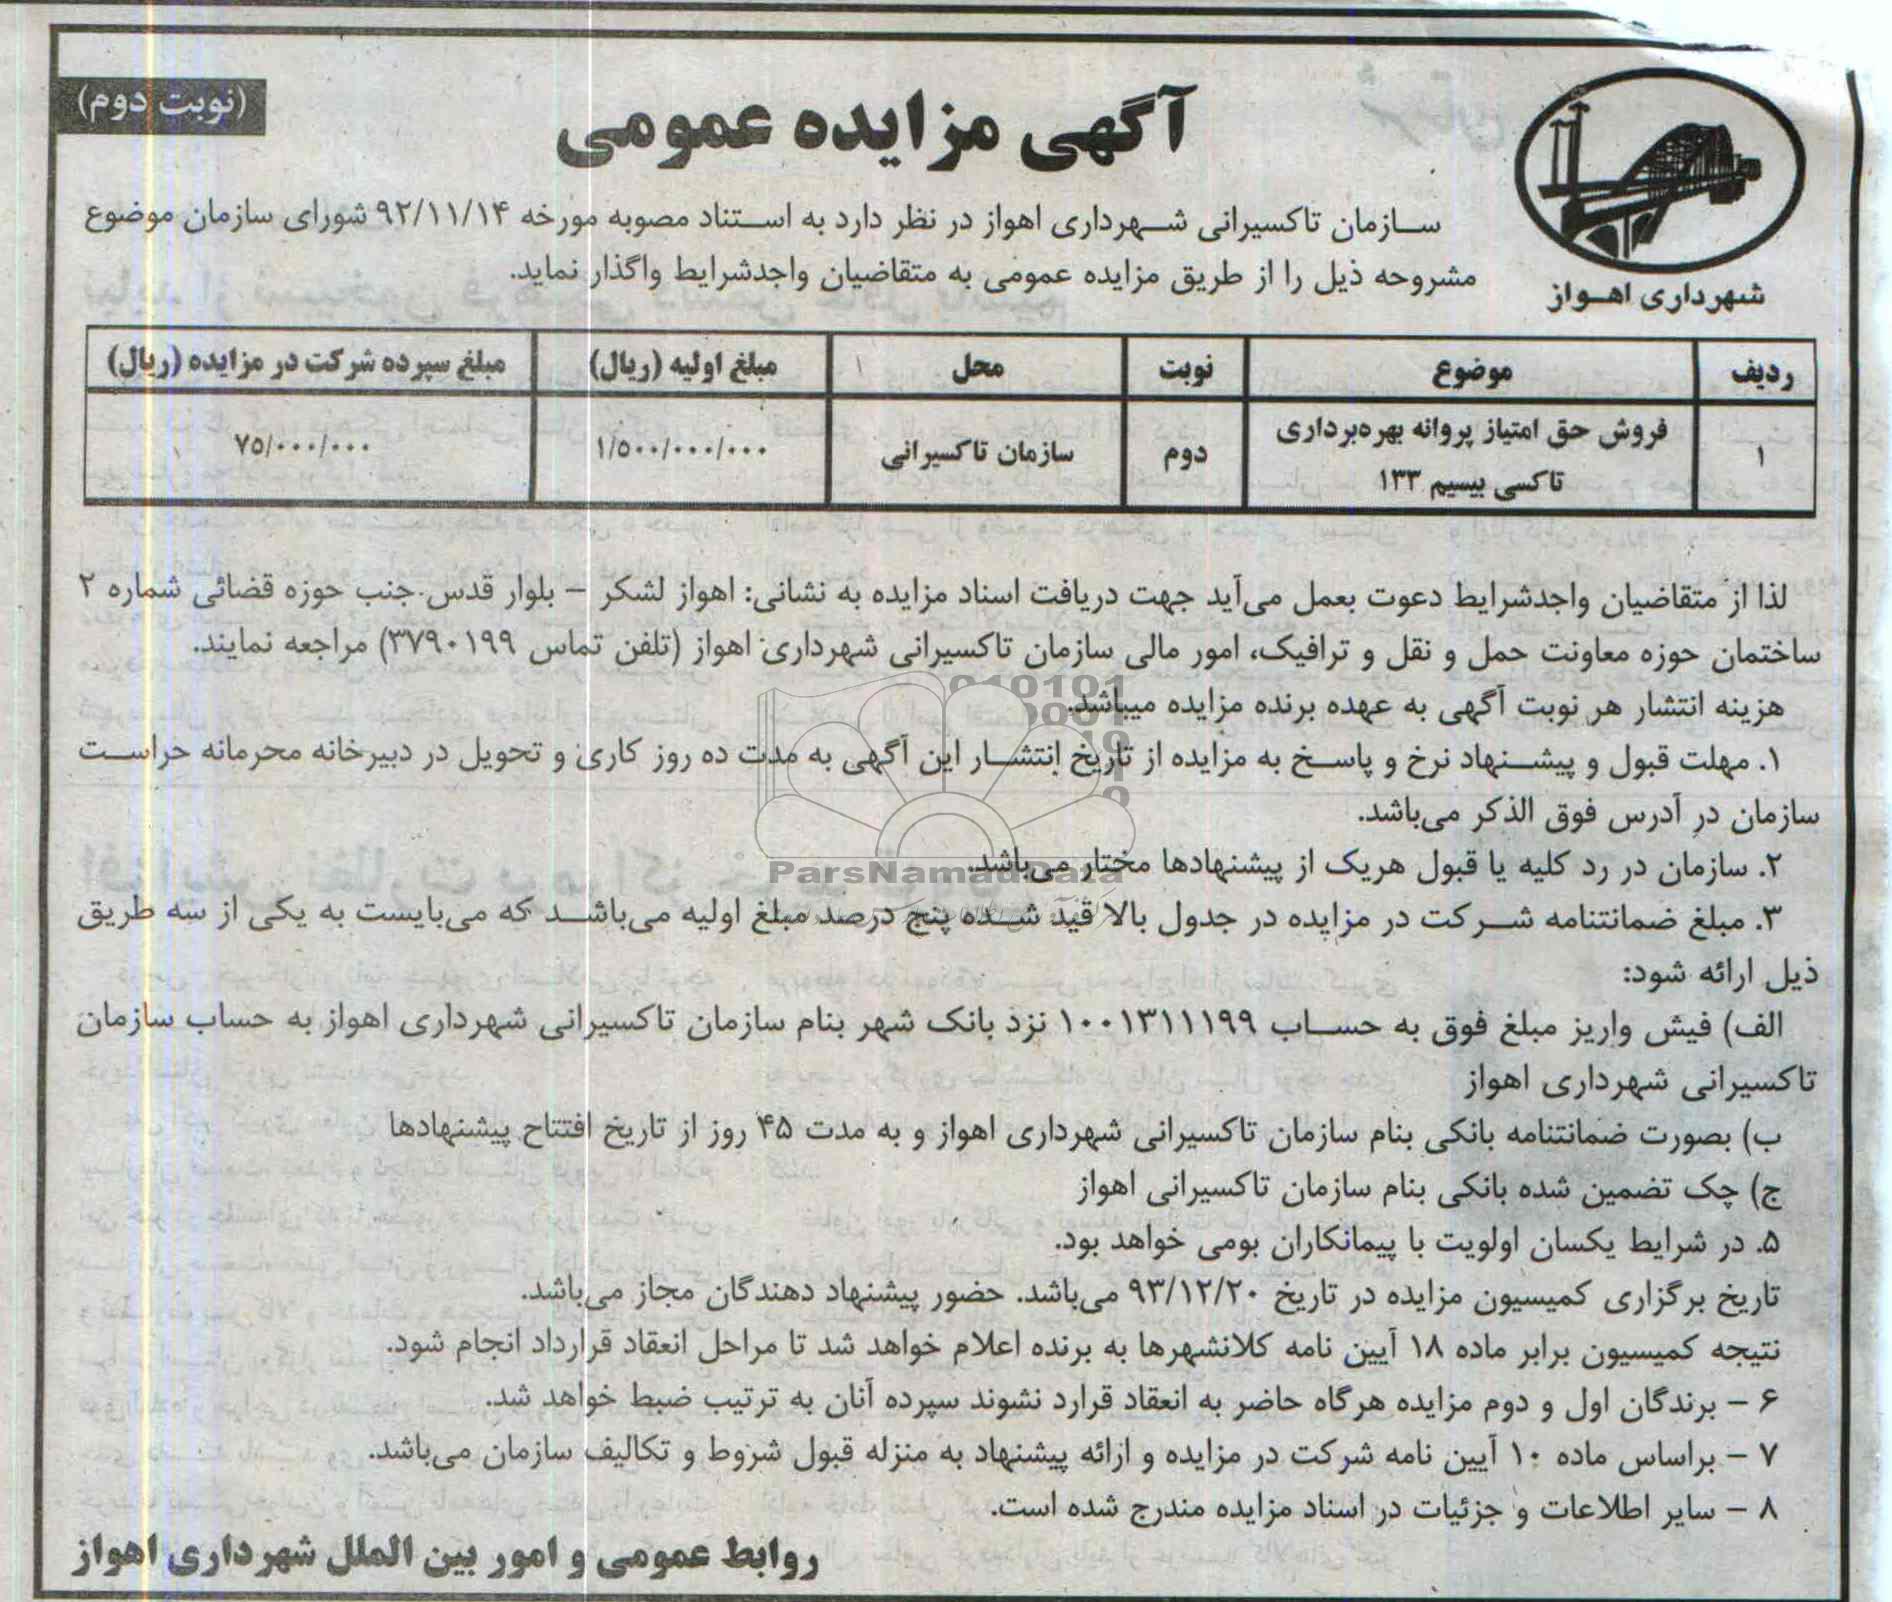 (نوبت دوم)
آگهی مزایده عمومی
شهرداری اهـواز
سـازمان تاکسیرانی شـهرداری اهواز در نظر دارد به اسـتناد مصوبه مورخه ۹۲/۱۱/۱۴ شورای سازمان موضوع
مشروحه ذیل را از طریق مزایده عمومی به متقاضیان واجدشرایط واگذار نماید.
ردیف موضوع نوبت محل مبلغ اولیه (ریال) مبلغ سپرده شرکت در مزایده (ریال)
۱ فروش حق امتیاز پروانه بهره‌برداری تاکسی بیسیم ۱۳۳ دوم سازمان تاکسیرانی ۱/۵۰۰/۰۰۰/۰۰۰ ۷۵/۰۰۰/۰۰۰
لذا از متقاضیان واجدشرایط دعوت بعمل می‌آید جهت دریافت اسناد مزایده به نشانی: اهواز لشکر – بلوار قدس جنب حوزه قضائی شماره ۲
ساختمان حوزه معاونت حمل و نقل و ترافیک، امور مالی سازمان تاکسیرانی شهرداری اهواز (تلفن تماس ۳۷۹۰۱۹۹) مراجعه نمایند.
هزینه انتشار هر نوبت آگهی به عهده برنده مزایده میباشد.
۱. مهلت قبول و پیشـنهاد نرخ و پاسـخ به مزایده از تاریخ انتشـار این آگهی به مدت ده روز کاری و تحویل در دبیرخانه محرمانه حراسـت
سازمان در آدرس فوق الذکر می‌باشد.
۲. سازمان در رد کلیه یا قبول هریک از پیشنهادها مختار می‌باشد.
ParsNamadData
۳. مبلغ ضمانتنامه شـرکت در مزایده در جدول بالا قید شـده پنج درصد مبلغ اولیه می‌باشـد که می‌بایست به یکی از سه طریق
ذیل ارائه شود:
الف) فیش واریز مبلغ فوق به حسـاب ۱۰۰۱۳۱۱۱۹۹ نزد بانک شهر بنام سازمان تاکسیرانی شهرداری اهواز به حساب سازمان
تاکسیرانی شهرداری اهواز
ب) بصورت ضمانتنامه بانکی بنام سازمان تاکسیرانی شهرداری اهواز و به مدت ۴۵ روز از تاریخ افتتاح پیشنهادها
ج) چک تضمین شده بانکی بنام سازمان تاکسیرانی اهواز
۵. در شرایط یکسان اولویت با پیمانکاران بومی خواهد بود.
تاریخ برگزاری کمیسیون مزایده در تاریخ ۹۳/۱۲/۲۰ می‌باشد. حضور پیشنهاد دهندگان مجاز می‌باشد.
نتیجه کمیسیون برابر ماده ۱۸ آیین نامه کلانشهرها به برنده اعلام خواهد شد تا مراحل انعقاد قرارداد انجام شود.
۶ – برندگان اول و دوم مزایده هرگاه حاضر به انعقاد قرارد نشوند سپرده آنان به ترتیب ضبط خواهد شد.
۷ – براساس ماده ۱۰ آیین نامه شرکت در مزایده و ارائه پیشنهاد به منزله قبول شروط و تکالیف سازمان می‌باشد.
۸ – سایر اطلاعات و جزئیات در اسناد مزایده مندرج شده است.
روابط عمومی و امور بین الملل شهرداری اهواز